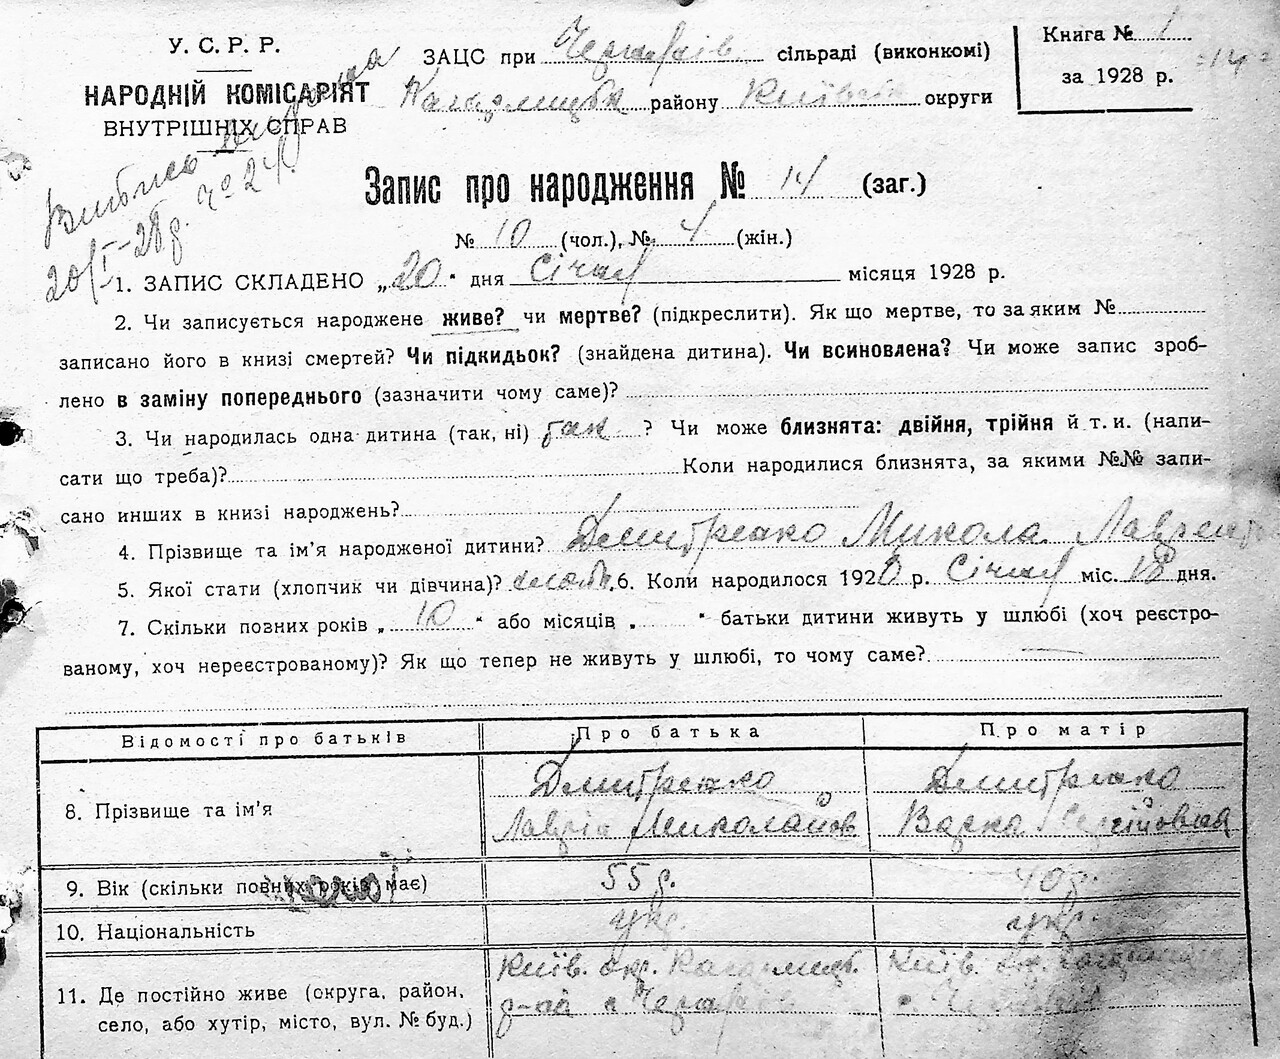 У. С. Р. Р.
НАРОДНІЙ КОМІСАРІЯТ
ВНУТРІШНІХ СПРАВ
ЗАЦС при сільраді (виконкомі)
Кагарлицьк району Київськ округи
Книга № 1
за 1928 р.
=14=
20/I-28 р. № 24
Запис про народження № 14 (заг.)
№ 10 (чол.), № 4 (жін.)
1. ЗАПИС СКЛАДЕНО „20" дня Січня місяця 1928 р.
2. Чи записується народжене живе? чи мертве? (підкреслити). Як що мертве, то за яким №
записано його в книзі смертей? Чи підкидьок? (знайдена дитина). Чи всиновлена? Чи може запис зроб-
лено в заміну попереднього (зазначити чому саме)?
3. Чи народилась одна дитина (так, ні) так ? Чи може близнята: двійня, трійня й т. и. (напи-
сати що треба)? Коли народилися близнята, за якими №№ запи-
сано инших в книзі народжень?
4. Прізвище та ім'я народженої дитини? Дмитренко Микола Лаврент
5. Якої стати (хлопчик чи дівчина)? 6. Коли народилося 1928 р. Січня міс. 18 дня.
7. Скільки повних років „ 10 " або місяців „ " батьки дитини живуть у шлюбі (хоч реєстро-
ваному, хоч нереєстрованому)? Як що тепер не живуть у шлюбі, то чому саме?
Відомості про батьків Про батька Про матір
8. Прізвище та ім'я Дмитренко Дмитренко
Лаврін Миколайов Варка Сергійовна
9. Вік (скільки повних років має) 55 р. 40 р.
10. Національність укр. укр.
11. Де постійно живе (округа, район, Київ. окр. Кагарлицьк. Київ. окр.
село, або хутір, місто, вул. № буд.) р-на с.